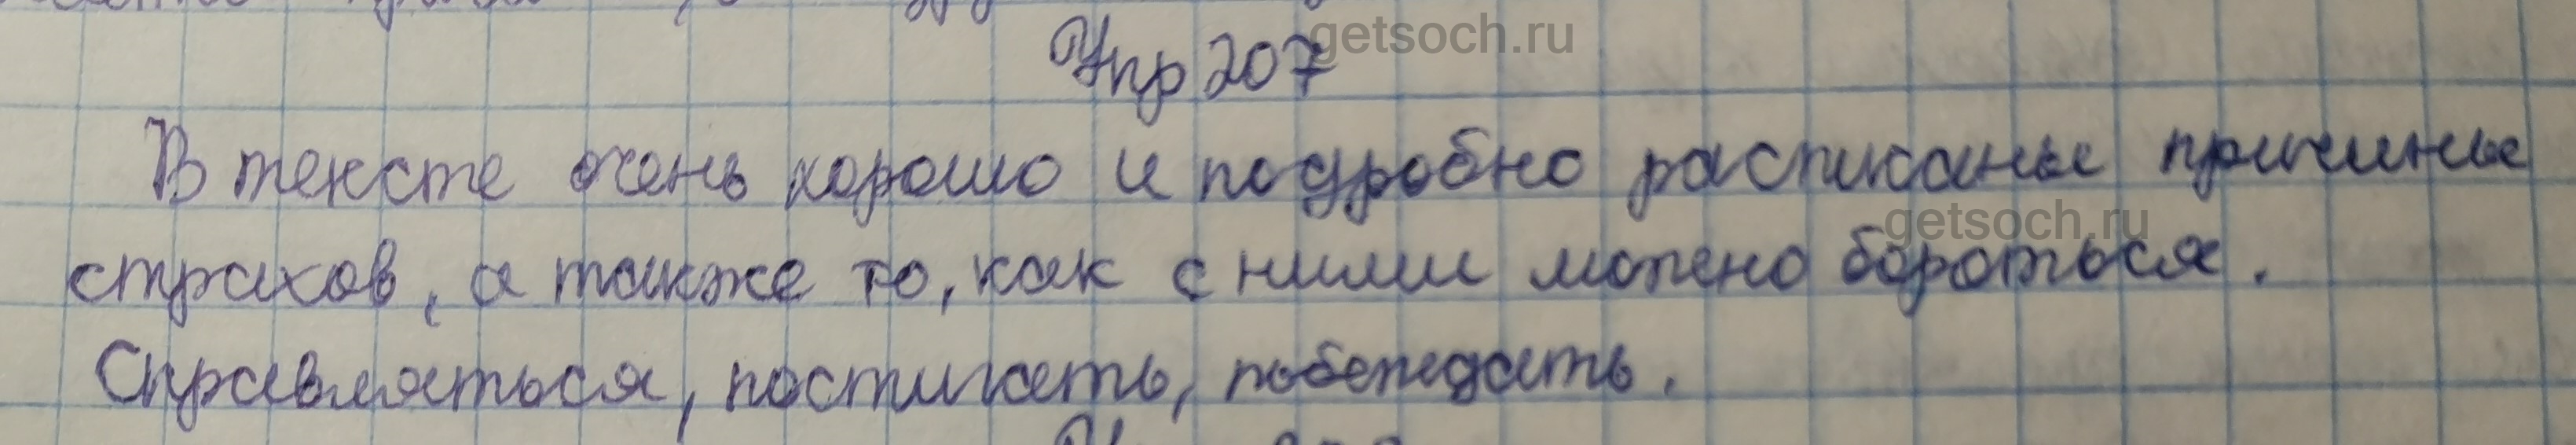 Упр 207
getsoch.ru
В тексте очень хорошо и подробно расписаны причины
getsoch.ru
страхов, а также то, как с ними можно бороться.
Справляться, постигать, побеждать.